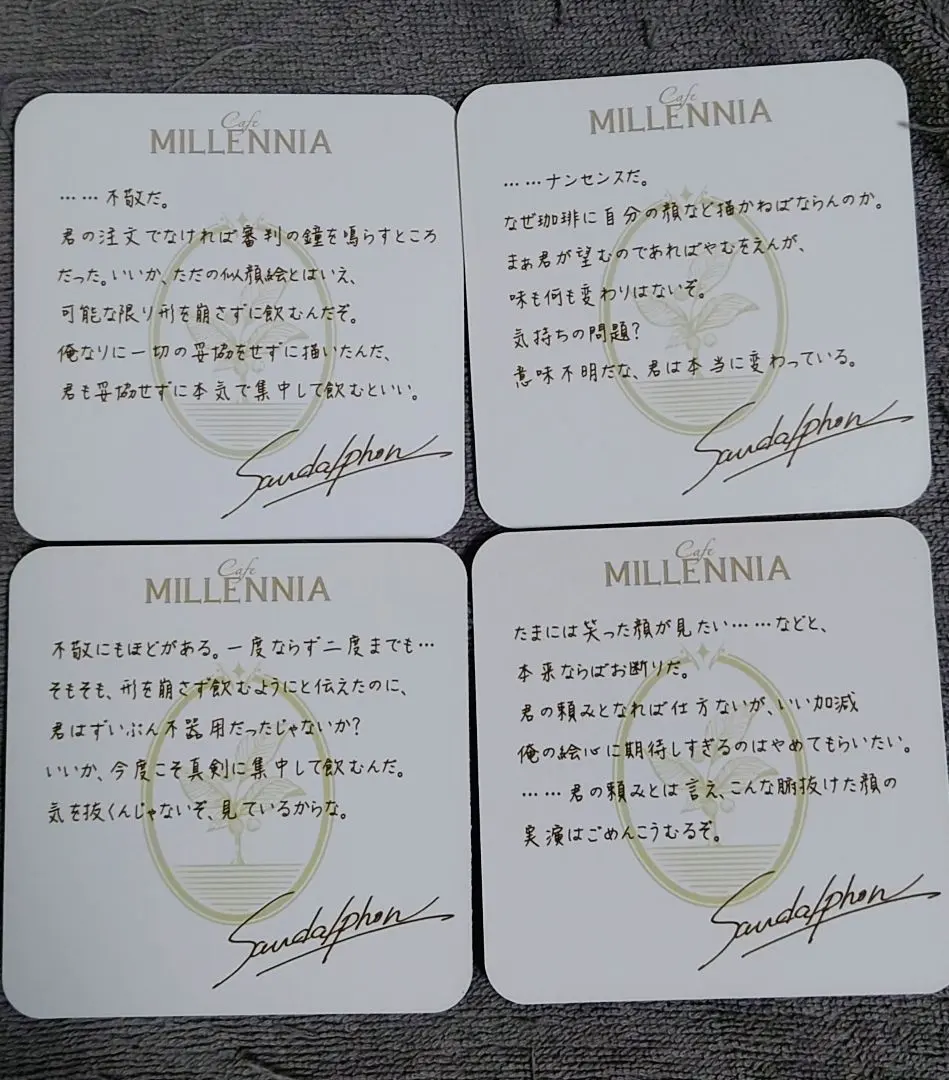 Cafe
MILLENNIA
……不敬だ。
君の注文でなければ審判の鐘を鳴らすところ
だった。いいか、ただの似顔絵とはいえ、
可能な限り形を崩さずに飲むんだぞ。
俺なりに一切の妥協をせずに描いたんだ、
君も妥協せずに本気で集中して飲むといい。
Sandalphon
Cafe
MILLENNIA
……ナンセンスだ。
なぜ珈琲に自分の顔など描かねばならんのか。
まぁ君が望むのであればやむをえんが、
味も何も変わりはないぞ。
気持ちの問題?
意味不明だな、君は本当に変わっている。
Sandalphon
Cafe
MILLENNIA
不敬にもほどがある。一度ならず二度までも…
そもそも、形を崩さず飲むようにと伝えたのに、
君はずいぶん不器用だったじゃないか?
いいか、今度こそ真剣に集中して飲むんだ。
気を抜くんじゃないぞ、見ているからな。
Sandalphon
Cafe
MILLENNIA
たまには笑った顔が見たい……などと、
本来ならばお断りだ。
君の頼みとなれば仕方ないが、いい加減
俺の絵心に期待しすぎるのはやめてもらいたい。
……君の頼みとは言え、こんな腑抜けた顔の
実演はごめんこうむるぞ。
Sandalphon